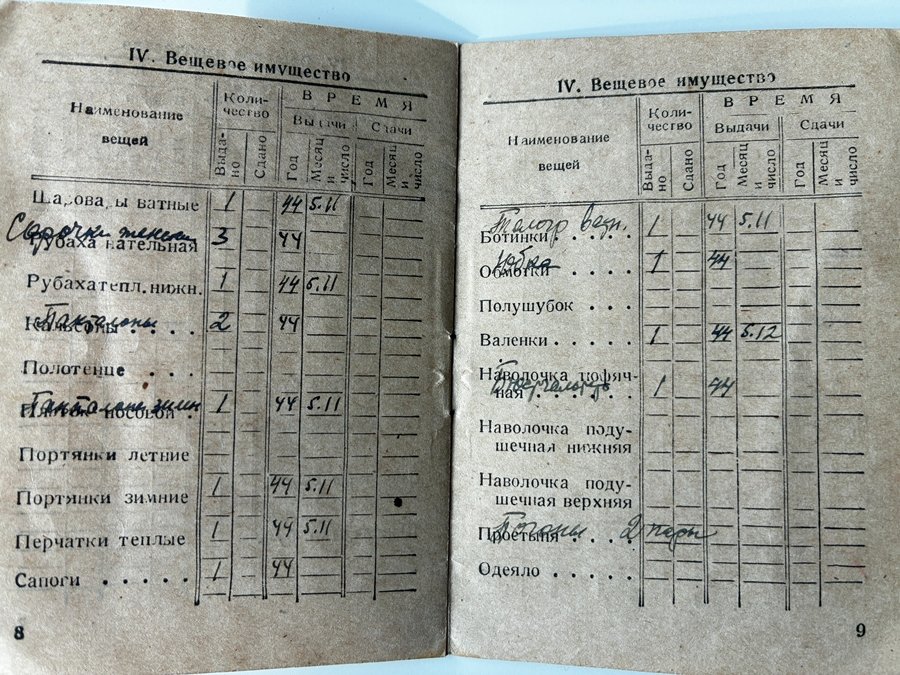 IV. Вещевое имущество
Наименование вещей
Количество
ВРЕМЯ
Выдачи
Сдачи
Выдано
Сдано
Год
Месяц и число
Год
Месяц и число
Шаровары ватные 1 44 5.11
Сорочки женские
Рубаха нательная 3 44
Рубаха тепл. нижн. 1 44 5.11
Панталоны
Кальсоны . . . . 2 44
Полотенце . . .
Панталоны зимн
Платок носовой . 1 44 5.11
Портянки летние
Портянки зимние 1 44 5.11
Перчатки теплые 1 44 5.11
Сапоги . . . . . 1 44
8
IV. Вещевое имущество
Наименование вещей
Количество
ВРЕМЯ
Выдачи
Сдачи
Выдано
Сдано
Год
Месяц и число
Год
Месяц и число
Ботинки . . . . 1 44 5.11
Юбка
Обмотки . . . . 1 44
Полушубок . .
Валенки . . . . 1 44 5.12
Наволочка тюфяч-
ная . . . . . . 1 44
Наволочка поду-
шечная нижняя
Наволочка поду-
шечная верхняя
Погоны 2 пары
Простыня . . . .
Одеяло . . . .
9